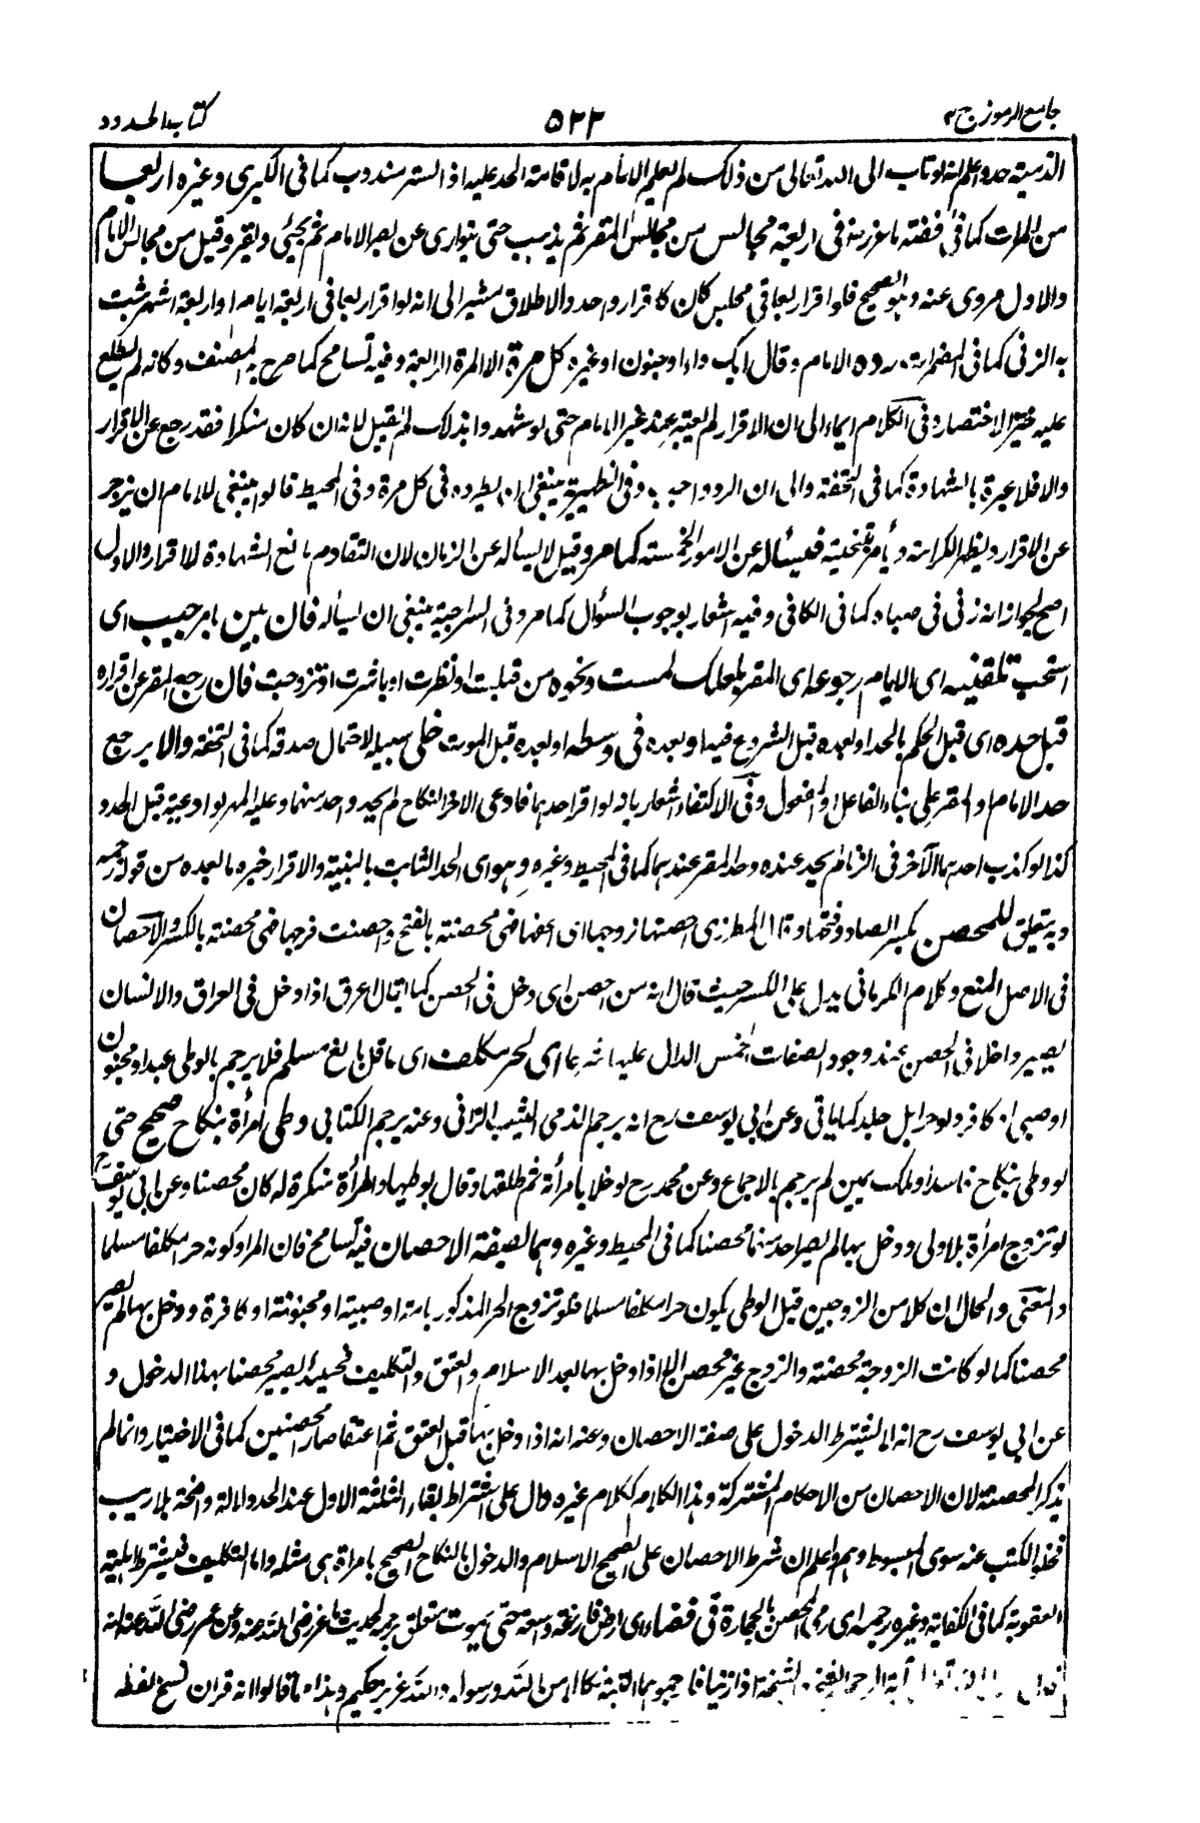 جامع الرموز ج ٢
٥٢٢
كتاب الحدود
الذمية حد واعلم انه لو تاب الى الله تعالى من ذلك لم يعلم الامام به لاقامة الحد عليه اذ الستر مندوب كما فى الكبرى وغيره اربعا
من المرات كما فى قصة ماعز رضه فى اربعة مجالس من مجالس المقر ثم يذهب حتى يتوارى عن بصر الامام ثم يجئ ويقر وقيل من مجالس الامام
والاول مروى عنه وهو الصحيح فلو اقر اربعا فى مجلس كان كاقرار واحد والاطلاق مشير الى انه لو اقر اربعا فى اربعة ايام او اربعة اشهر ثبت
به الزنى كما فى المضمرات رده الامام وقال ابك داء او جنون او غيره كل مرة الا المرة الرابعة وفيه تسامح كما صرح به المصنف وكانه لم يطلع
عليه مختير الاختصار وفى الكلام ايماء الى ان الاقرار لم يعتبر عند غير الامام حتى لو شهدوا بذلك لم يقبل لانه ان كان منكرا فقد رجع عن الاقرار
والا فلا عبرة بالشهادة كما فى التحفة والى ان الرد واجب وفى الظهيرية ينبغى ان يطرده فى كل مرة وفى المحيط قالوا ينبغى للامام ان يزجر
عن الاقرار ويظهر الكراهة ويأمر بتنحيته فيسأله عن الامور الخمسة كما مر وقيل لا يسأله عن الزمان لان التقادم مانع الشهادة لا الاقرار والاول
اصح لجواز انه زنى فى صباه كما فى الكافى وفيه اشعار بوجوب السؤال كما مر وفى السراجية ينبغى ان يسأله فان بين ما مر حبب اى
استحب تلقينه اى الامام رجوعه اى المقر بلعلك لمست ونحوه من قبلت او نظرت او باشرت او تزوجت فان رجع المقر عن اقراره
قبل حده اى قبل الحكم بالحد او بعده قبل الشروع فيه او بعده فى وسطه او بعده قبل الموت خلى سبيله لاحتمال صدقه كما فى التحفة والا يرجع
حد الامام والمقر على بناء الفاعل او المفعول وفى الاكتفاء اشعار بانه لو اقر احدهما فادعى الآخر النكاح لم يحد واحد منهما وعليه المهر لو ادعيته قبل الحد و
كذا لو كذب احدهما الآخر فى الزنا لم يحد عنده وحد المقر عندهما كما فى المحيط وغيره وهو اى الحد الثابت بالبينة والاقرار خبره ما بعده من قوله رجمه
وبه يتعلق للمحصن بكسر الصاد وفتحها وقال المطرزى احصنها زوجها اى اعفها فهى محصنة بالفتح واحصنت فرجها فهى محصنة بالكسر والاحصان
فى الاصل المنع وكلام الكرمانى يدل على الكسر حيث قال انه من احصن اى دخل فى الحصن كما يقال اعرق اذا دخل فى العراق والانسان
يصير داخلا فى الحصن عند وجود الصفات الخمس الدال عليها اى لحر مكلف اى عاقل بالغ مسلم فلا يرجم بالوطى عبد او مجنون
او صبى او كافر ولو حرا بل جلد كما يأتى وعن ابى يوسف رح انه يرجم الذمى الثيب الزانى وعنه يرجم الكتابى وطى امرأة بنكاح صحيح حتى
لو وطى بنكاح فاسد او ملك يمين لم يرجم بالاجماع وعن محمد رح لو خلا بامرأة ثم طلقها وقال بوطيها والمرأة منكرة له كان محصنا وعن ابى يوسف رح
لو تزوج امرأة بلا ولى ودخل بها لم يصر احد منهما محصنا كما فى المحيط وغيره وهما بصفة الاحصان فيه تسامح فان المراد كونه حرا مكلفا مسلما
والمعنى والحال ان كلا من الزوجين قبل الوطى يكون حرا مكلفا مسلما فلو تزوج الحر المذكور بامة او صبية او مجنونة او كافرة ودخل بها لم يصر
محصنا كما لو كانت الزوجة محصنة والزوج غير محصن الا اذا دخل بها بعد الاسلام والعتق والتكليف فحينئذ يصير محصنا بهذا الدخول و
عن ابى يوسف رح انه لا يشترط الدخول على صفة الاحصان وعنه انه اذا دخل بها قبل العتق ثم اعتقا صارا محصنين كما فى الاختيار وانما لم
يذكر المحصنة لان الاحصان من الاحكام المشتركة وهذا الكلام ككلام غيره دال على اشتراط بقاء الثلثة الاول عند الحد دلالة واضحة بلا ريب
فخذ الكتب عنه سوى المبسوط وهم واعلم ان شرط الاحصان على الصحيح الاسلام والدخول بالنكاح الصحيح بامراة هى مثله واما التكليف فيشترط اهلية
العقوبة كما فى الكفاية وغيره رجمه اى رمى المحصن بالحجارة فى فضاء اى ارض فارغة واسعة حتى يموت متعلق برجمه لحديث ماعز رضى الله عنه وعن عمر رضى الله عنه انه
الشيخ والشيخة اذا زنيا فارجموهما البتة نكالا من الله ورسوله والله عزيز حكيم وهذا ما قالوا انه قران نسخ لفظه